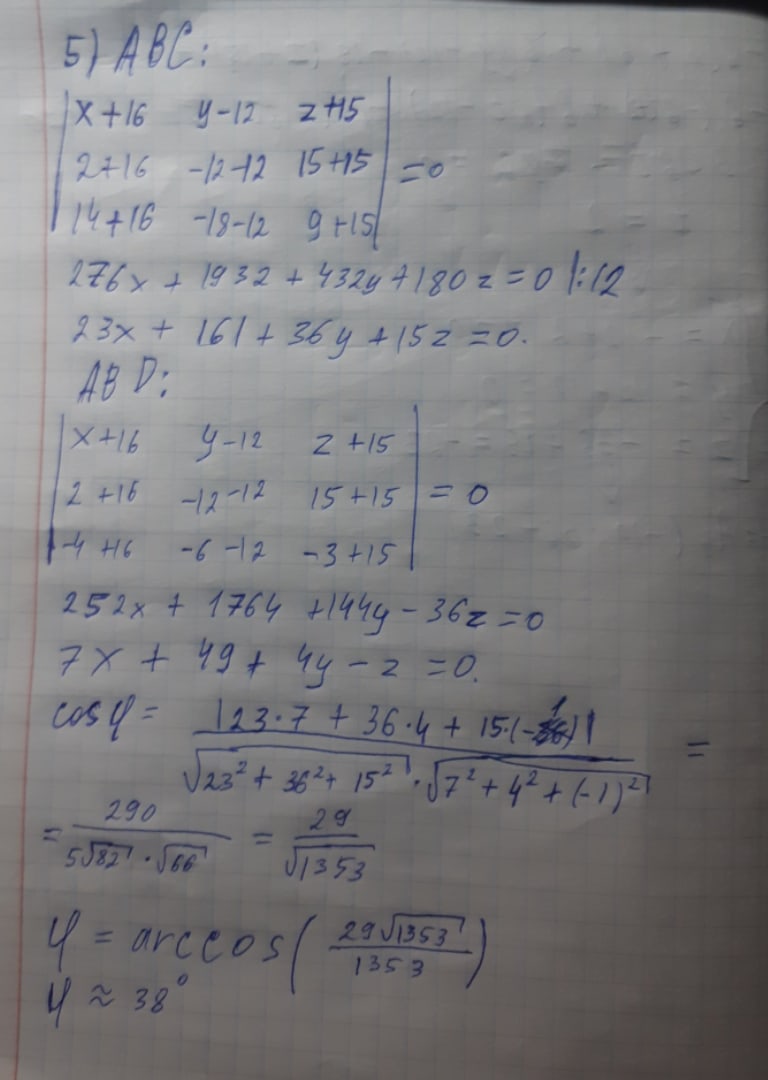 5) ABC:
| x+16 y-12 z+15 |
| 2+16 -12-12 15+15 | =0
| 14+16 -18-12 9+15 |
276x + 1932 + 432y + 180z = 0 |:12
23x + 161 + 36y + 15z = 0.
ABD:
| x+16 y-12 z+15 |
| 2+16 -12-12 15+15 | = 0
| -4+16 -6-12 -3+15 |
252x + 1764 + 144y - 36z = 0
7x + 49 + 4y - z = 0.
cosφ = |23·7 + 36·4 + 15·(-1)| / √(23² + 36² + 15²) · √(7² + 4² + (-1)²) =
= 290 / 5√82 · √66 = 29 / √1353
φ = arccos( 29√1353 / 1353 )
φ ≈ 38°